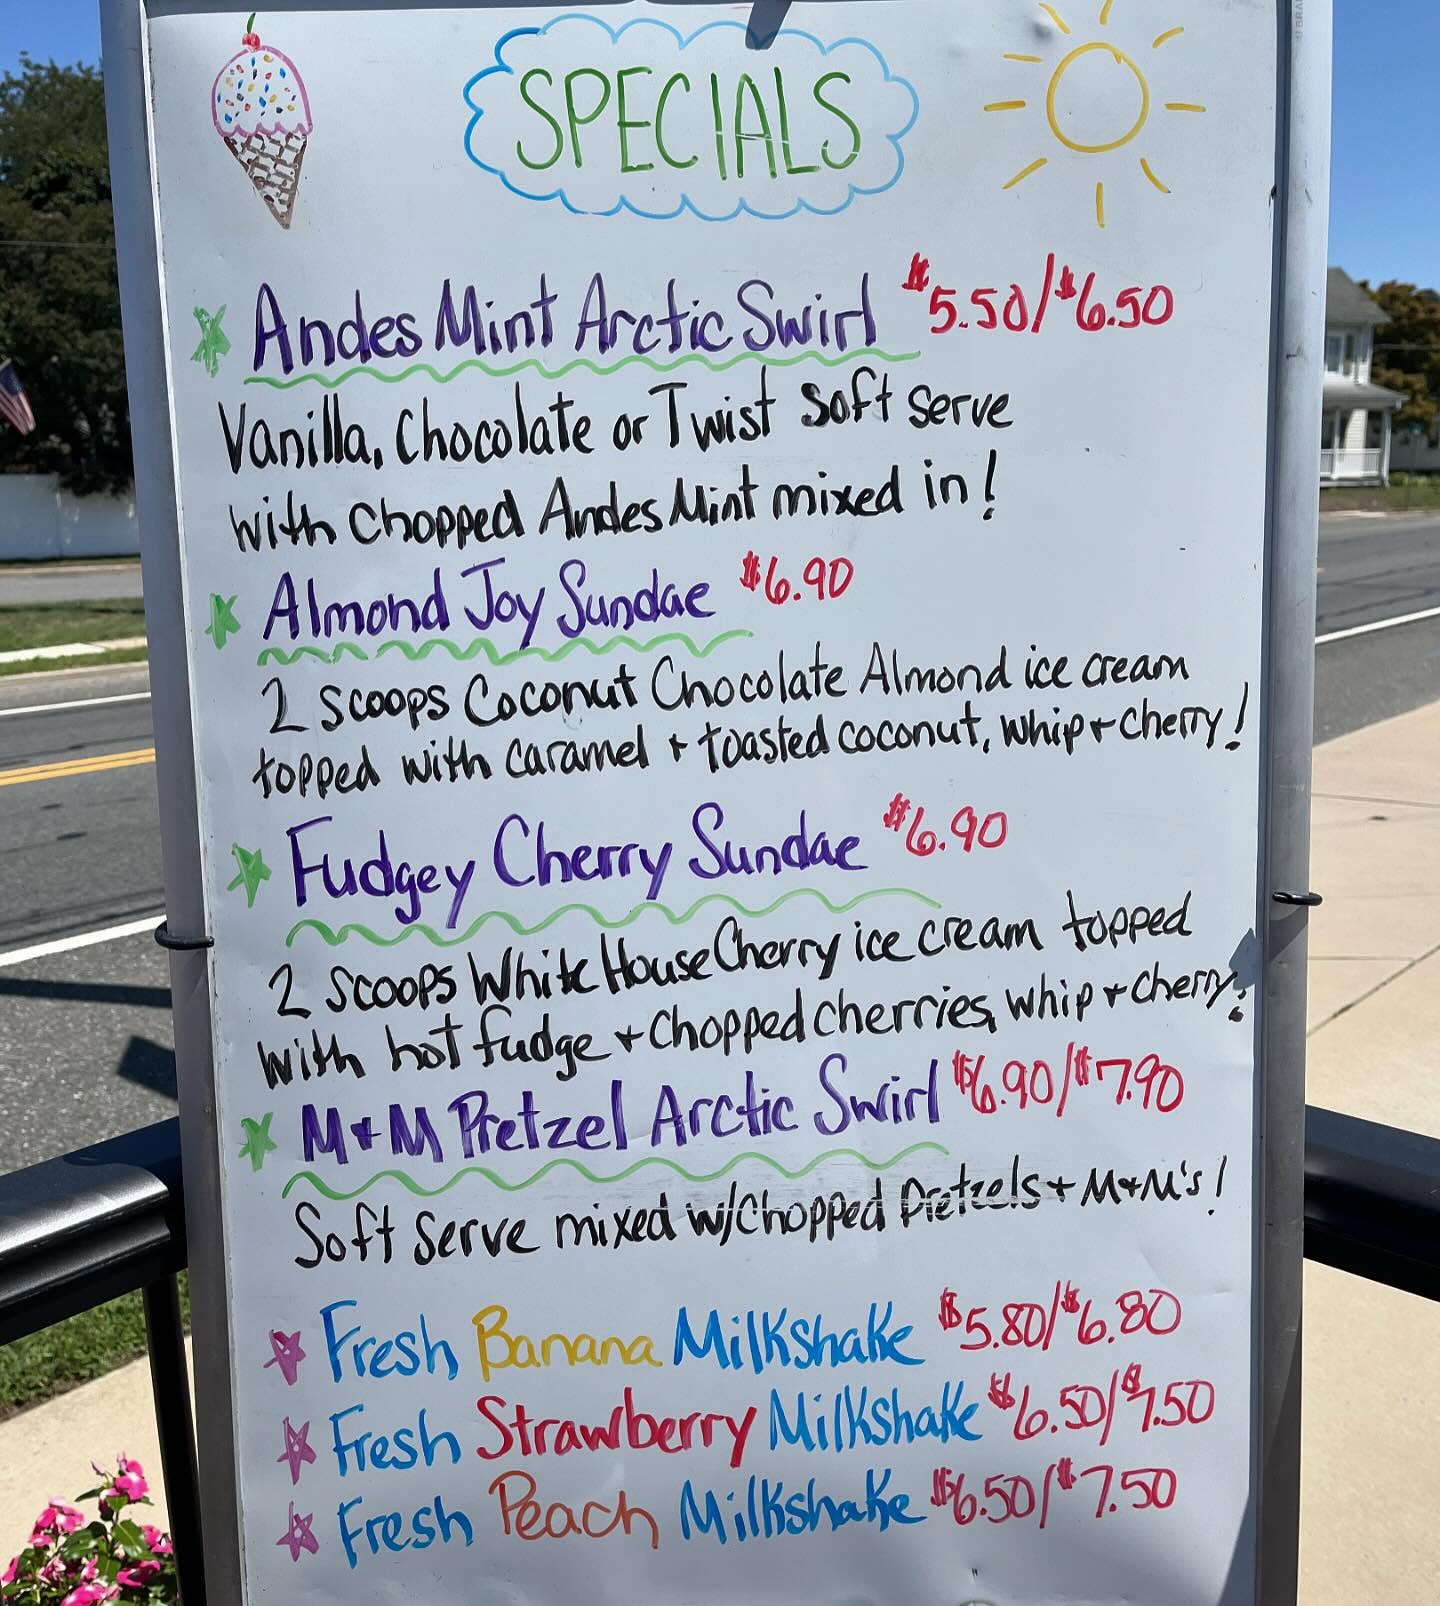 SPECIALS
Andes Mint Arctic Swirl $5.50/$6.50
Vanilla, Chocolate or Twist soft serve
with chopped Andes Mint mixed in!
Almond Joy Sundae $6.90
2 scoops Coconut Chocolate Almond ice cream
topped with caramel + toasted coconut, whip + cherry!
Fudgey Cherry Sundae $6.90
2 scoops White House Cherry ice cream topped
with hot fudge + chopped cherries, whip + cherry!
M+M Pretzel Arctic Swirl $6.90/$7.90
Soft serve mixed w/chopped pretzels + M+M's!
Fresh Banana Milkshake $5.80/$6.80
Fresh Strawberry Milkshake $6.50/$7.50
Fresh Peach Milkshake $6.50/$7.50